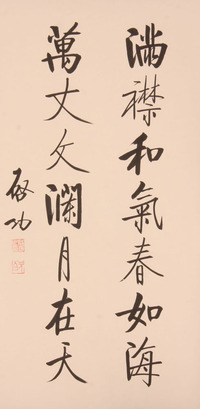 满襟和氣春如海
萬丈文瀾月在天
啟功